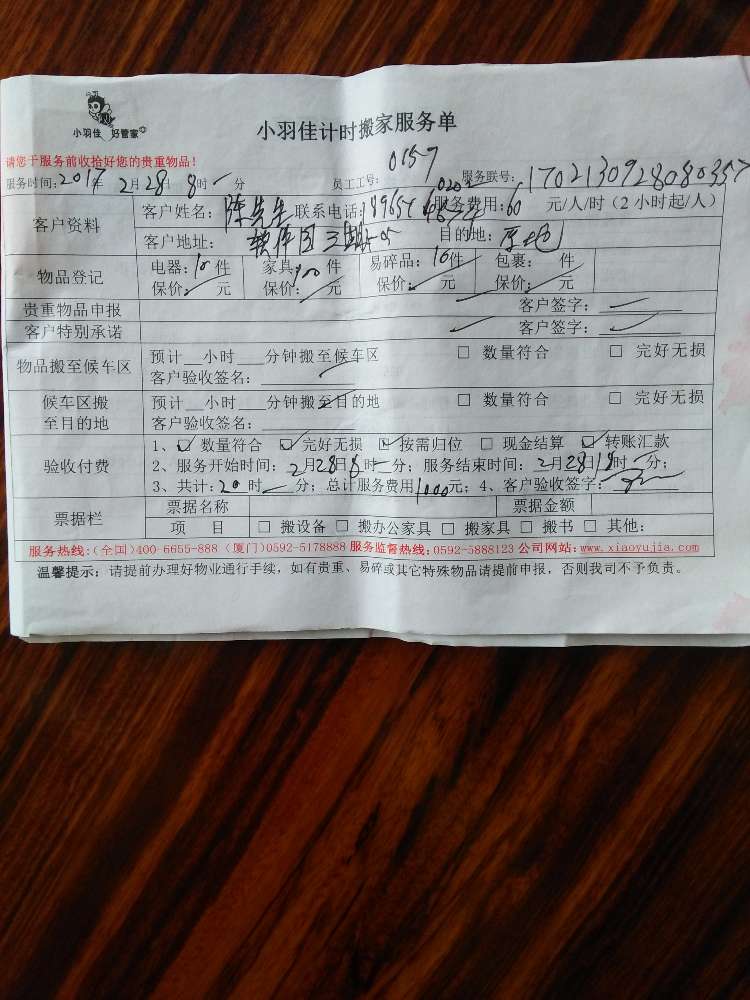 小羽佳 好管家
小羽佳计时搬家服务单
请您于服务前收拾好您的贵重物品!
服务时间:2017年2月28日8时 分 员工工号:0157 0202 服务联号:170213092808035
客户资料
客户姓名:陈先生 联系电话:189657 服务费用:60 元/人/时(2小时起/人)
客户地址:软件园三期 目的地:原地
物品登记
电器:10件 家具: 件 易碎品:10件 包裹: 件
保价: 元 保价: 元 保价: 元 保价: 元
贵重物品申报 客户签字:
客户特别承诺 客户签字:
物品搬至候车区
预计__小时___分钟搬至候车区 □ 数量符合 □ 完好无损
客户验收签名:
候车区搬至目的地
预计__小时___分钟搬至目的地 □ 数量符合 □ 完好无损
客户验收签名:
验收付费
1、☑ 数量符合 ☑ 完好无损 ☑ 按需归位 □ 现金结算 ☑ 转账汇款
2、服务开始时间:2月28日8时 分;服务结束时间:2月28日18时 分;
3、共计:20时 分;总计服务费用1000元;4、客户验收签字:
票据栏
票据名称 票据金额
项 目 □ 搬设备 □ 搬办公家具 □ 搬家具 □ 搬书 □ 其他:
服务热线:(全国)400-6655-888 (厦门)0592-5178888 服务监督热线:0592-5888123 公司网站:www.xiaoyujia.com
温馨提示:请提前办理好物业通行手续,如有贵重、易碎或其它特殊物品请提前申报,否则我司不予负责。